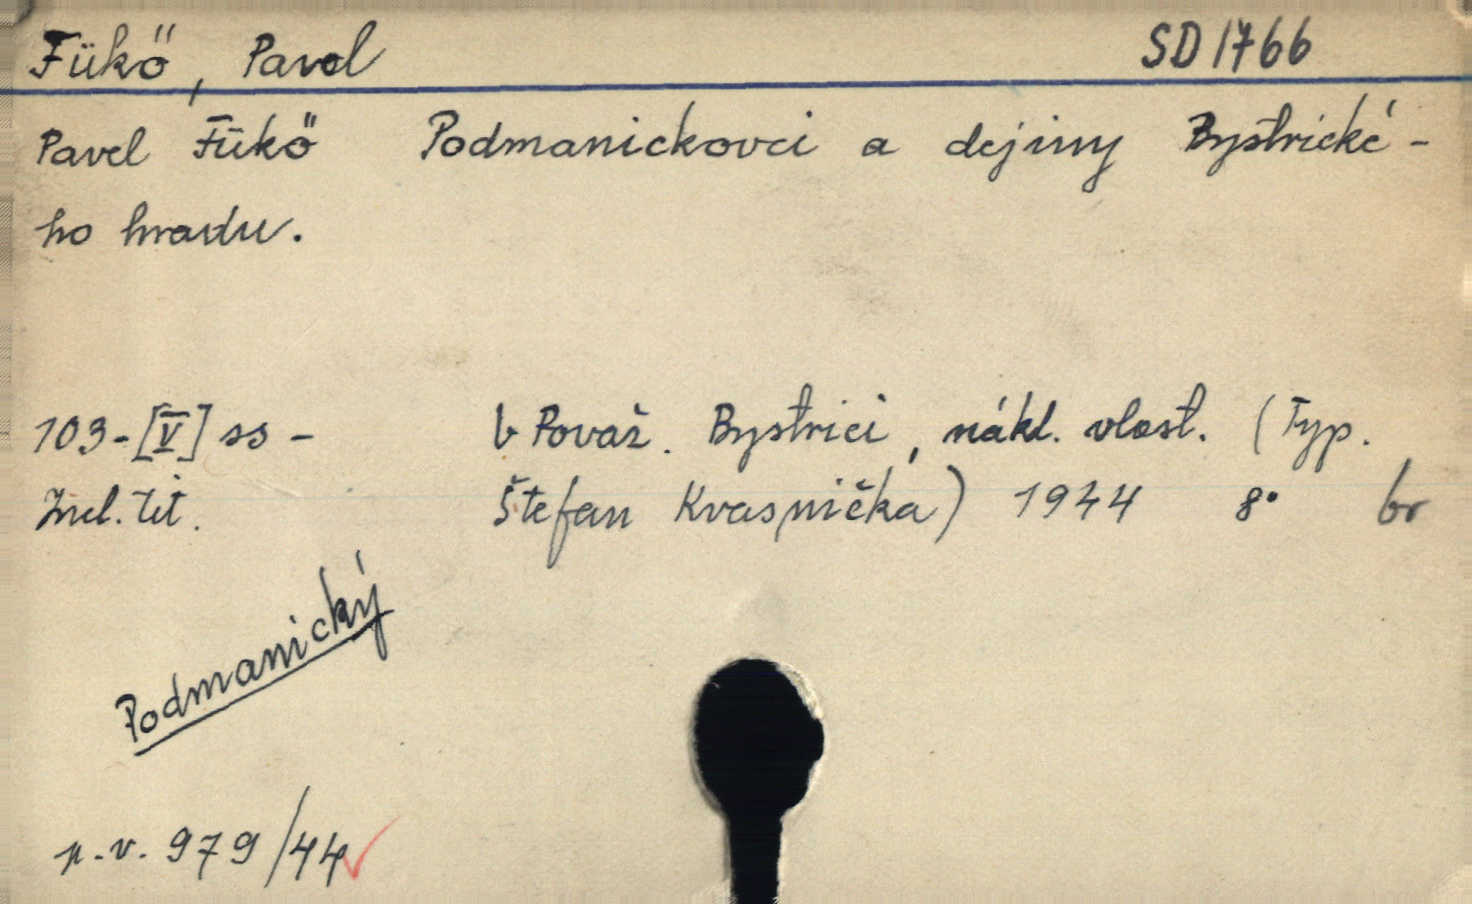 Fükő, Pavel SD 1766
Pavel Fükő Podmanickovci a dejiny Bystrické-
ho hradu.
103-[V] ss - V Považ. Bystrici, nákl. vlast. (Typ.
Incl. tit. Štefan Kvasnička) 1944 8° br
Podmanický
p.v. 979/44